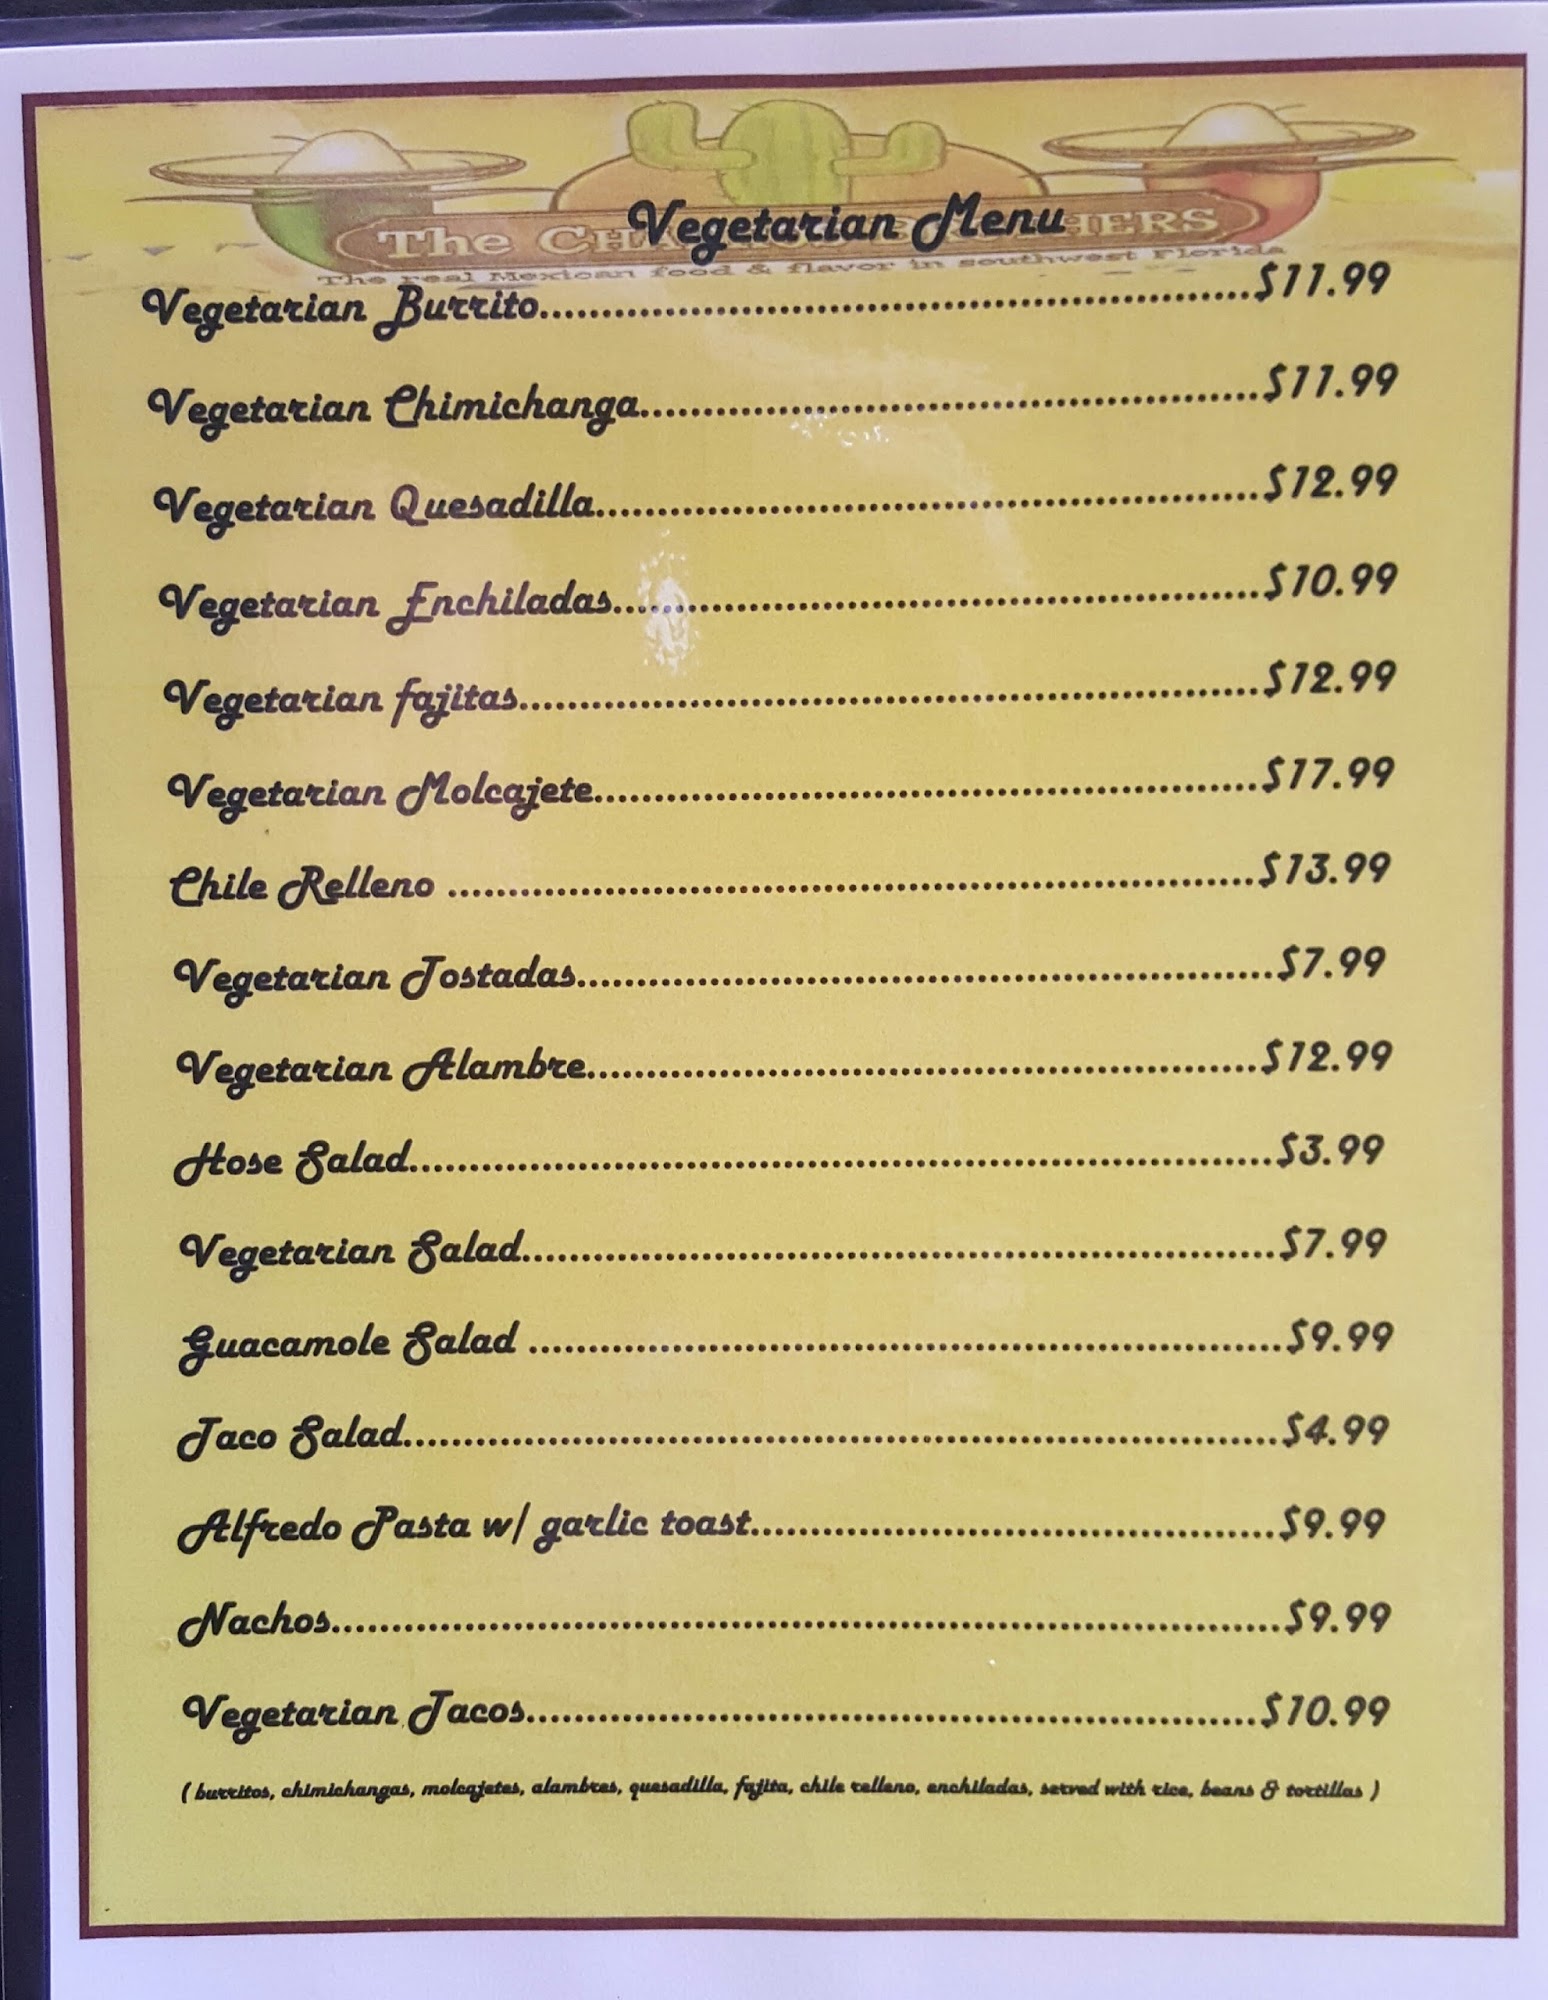 Vegetarian Menu
The
The real Mexican food & flavor in southwest Florida
Vegetarian Burrito..........$11.99
Vegetarian Chimichanga..........$11.99
Vegetarian Quesadilla..........$12.99
Vegetarian Enchiladas..........$10.99
Vegetarian fajitas..........$12.99
Vegetarian Molcajete..........$17.99
Chile Relleno ..........$13.99
Vegetarian Tostadas..........$7.99
Vegetarian Alambre..........$12.99
Hose Salad..........$3.99
Vegetarian Salad..........$7.99
Guacamole Salad ..........$9.99
Taco Salad..........$4.99
Alfredo Pasta w/ garlic toast..........$9.99
Nachos..........$9.99
Vegetarian Tacos..........$10.99
( burritos, chimichangas, molcajetes, alambres, quesadilla, fajita, chile relleno, enchiladas, served with rice, beans & tortillas )